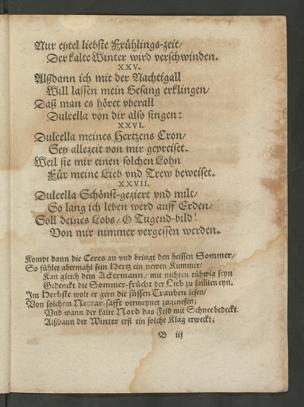 Nur eytel liebste Frühlings-zeit/
Der kalte Winter wird verschwinden.
XXV.
Alßdann ich mit der Nachtigall
Will lassen mein Gesang erklingen/
Daß man es höret vberall
Dulcella von dir also singen:
XXVI.
Dulcella meines Hertzens Cron/
Sey allezeit von mir gepreiset.
Weil sie mir einen solchen Lohn
Für meine Lieb vnd Trew beweiset.
XXVII.
Dulcella Schönst-geziert vnd milt/
So lang ich leben werd auff Erden/
Soll deines Lobs/ O Tugend-bild!
Von mir nimmer vergessen werden.
Kompt dann die Ceres an vnd bringt den heissen Sommer/
So fühlet abermahl sein Hertz ein newen Kummer/
Kan gleich dem Ackermann/ mit nichten rühwig seyn
Gedenckt die Sommer-frücht der Lieb zu samlen eyn.
Im Herbste wolt er gern die süssen Trauben lesen/
Von solchem Nectar-safft vermeynet zugenesen:
Vnd wann der kalte Nord das Feld mit Schnee bedeckt
Alßdann der Winter erst ein solche Klag erweckt;
B iij